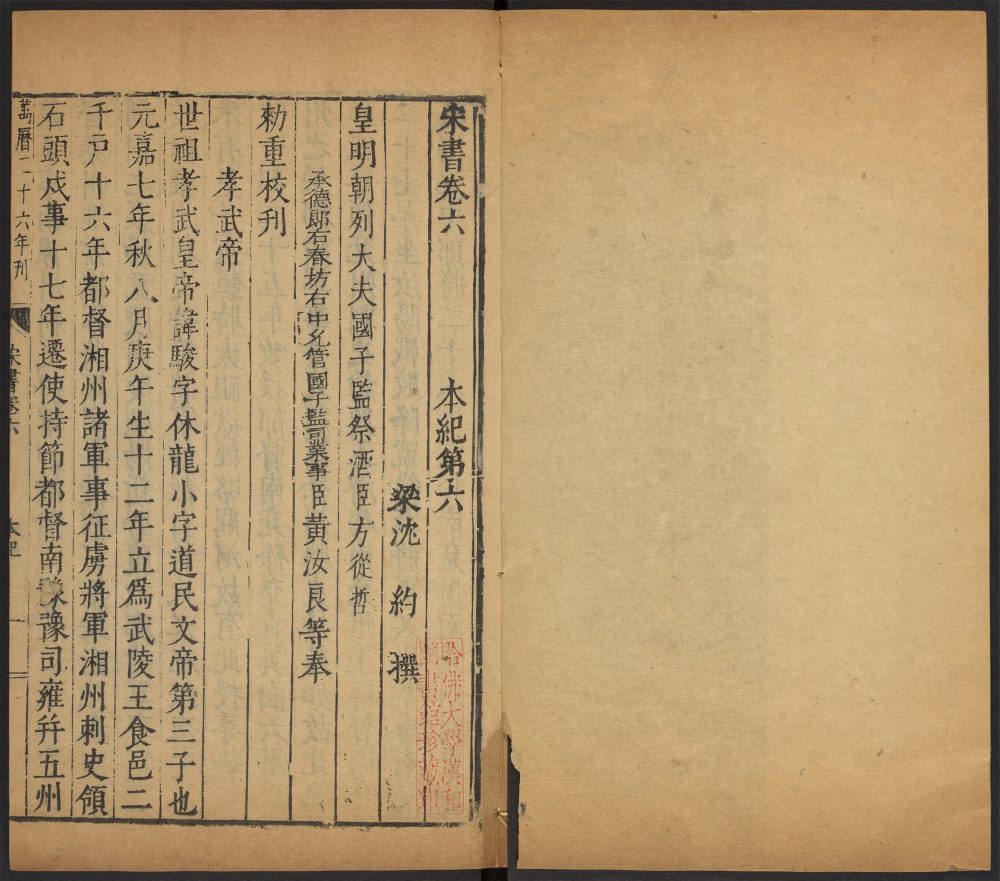 宋書卷六　本紀第六
梁沈約撰
皇明朝列大夫國子監祭酒臣方從哲
承德郎右春坊右中允管國子監司業事臣黃汝良等奉
勑重校刋
孝武帝
世祖孝武皇帝諱駿字休龍小字道民文帝第三子也
元嘉七年秋八月庚午生十二年立爲武陵王食邑二
千戸十六年都督湘州諸軍事征虜將軍湘州刺史領
石頭戍事十七年遷使持節都督南豫豫司雍幷五州
萬曆二十六年刋
宋書卷六
本紀
一
哈佛大學漢和
圖書館珍藏印